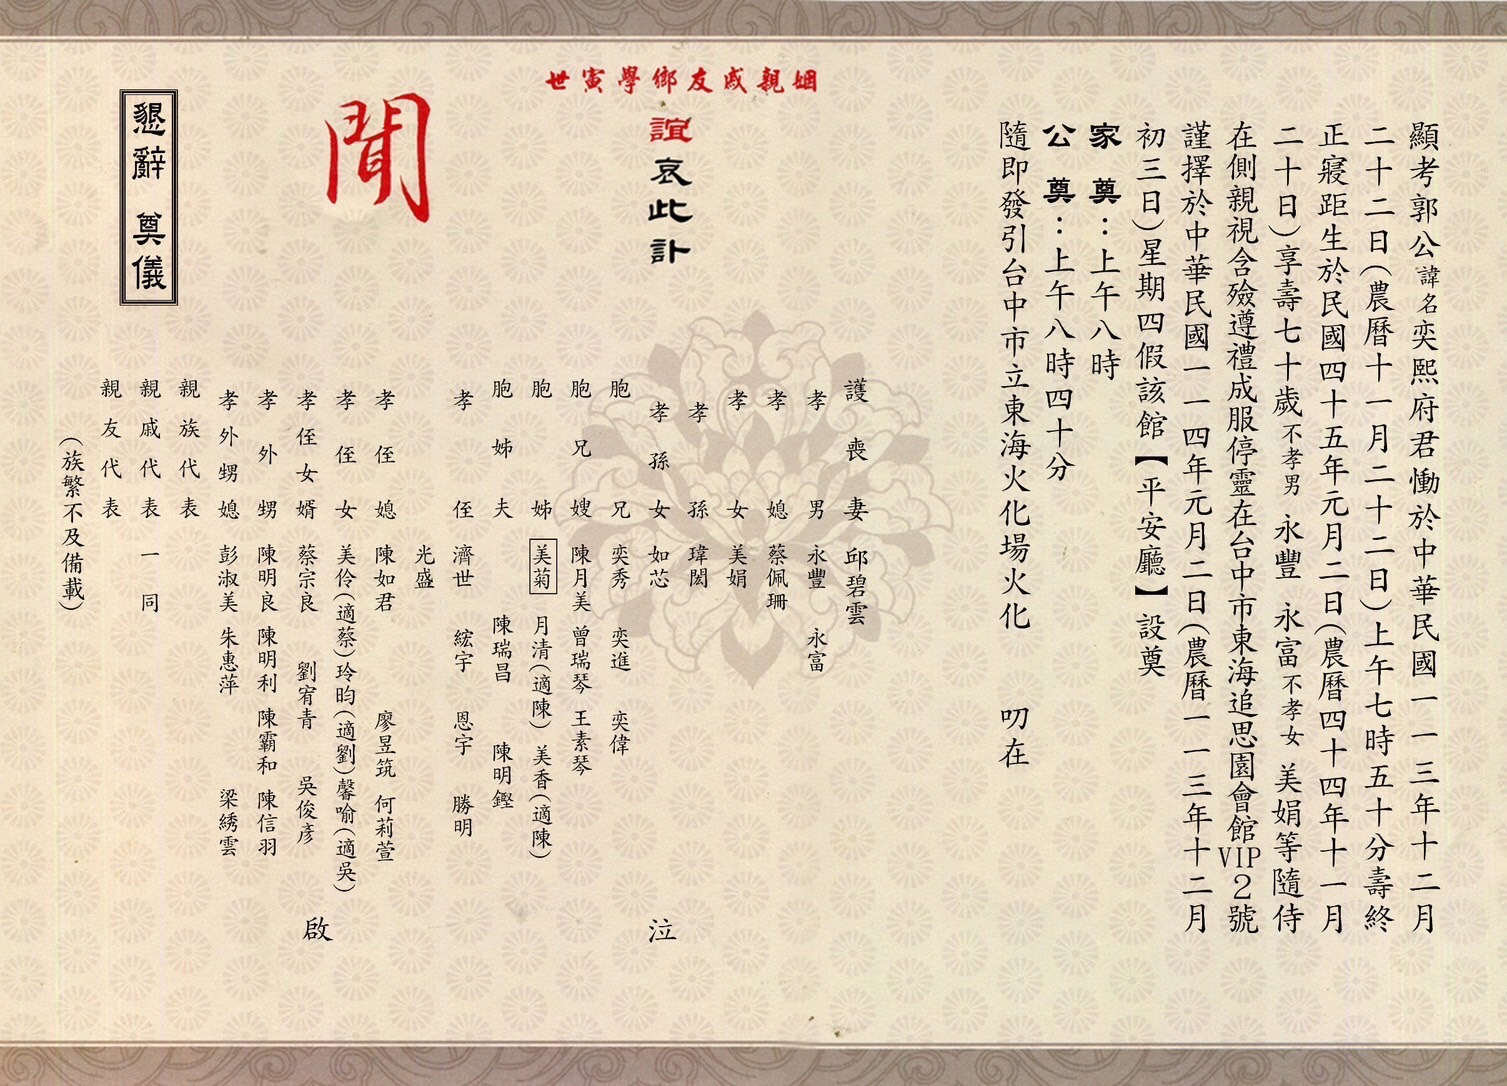 顯考郭公諱名奕熙府君慟於中華民國一一三年十二月
二十二日(農曆十一月二十二日)上午七時五十分壽終
正寢距生於民國四十五年元月二日(農曆四十四年十一月
二十日)享壽七十歲不孝男 永豐 永富不孝女 美娟等隨侍
在側親視含殮遵禮成服停靈在台中市東海追思園會館VIP2號
謹擇於中華民國一一四年元月二日(農曆一一三年十二月
初三日)星期四假該館【平安廳】設奠
家 奠：上午八時
公 奠：上午八時四十分
隨即發引台中市立東海火化場火化 叨在
姻親戚友鄉學寅世
誼哀此訃
聞
護喪妻 邱碧雲
孝男 永豐 永富
孝媳 蔡佩珊
孝女 美娟
孝孫 瑋閎
孝孫女 如芯
胞兄 奕秀 奕進 奕偉
胞兄嫂 陳月美 曾瑞琴 王素琴
胞姊 美菊 月清(適陳) 美香(適陳)
胞姊夫 陳瑞昌 陳明鏗
孝侄 濟世 綋宇 恩宇 勝明
光盛
孝侄媳 陳如君 廖昱筑 何莉萱
孝侄女 美伶(適蔡) 玲昀(適劉) 馨喻(適吳)
孝侄女婿 蔡宗良 劉宥青 吳俊彥
孝外甥 陳明良 陳明利 陳霸和 陳信羽
孝外甥媳 彭淑美 朱惠萍 梁綉雲
親族代表
親戚代表 一同
親友代表
(族繁不及備載)
泣
啟
懇辭 奠儀